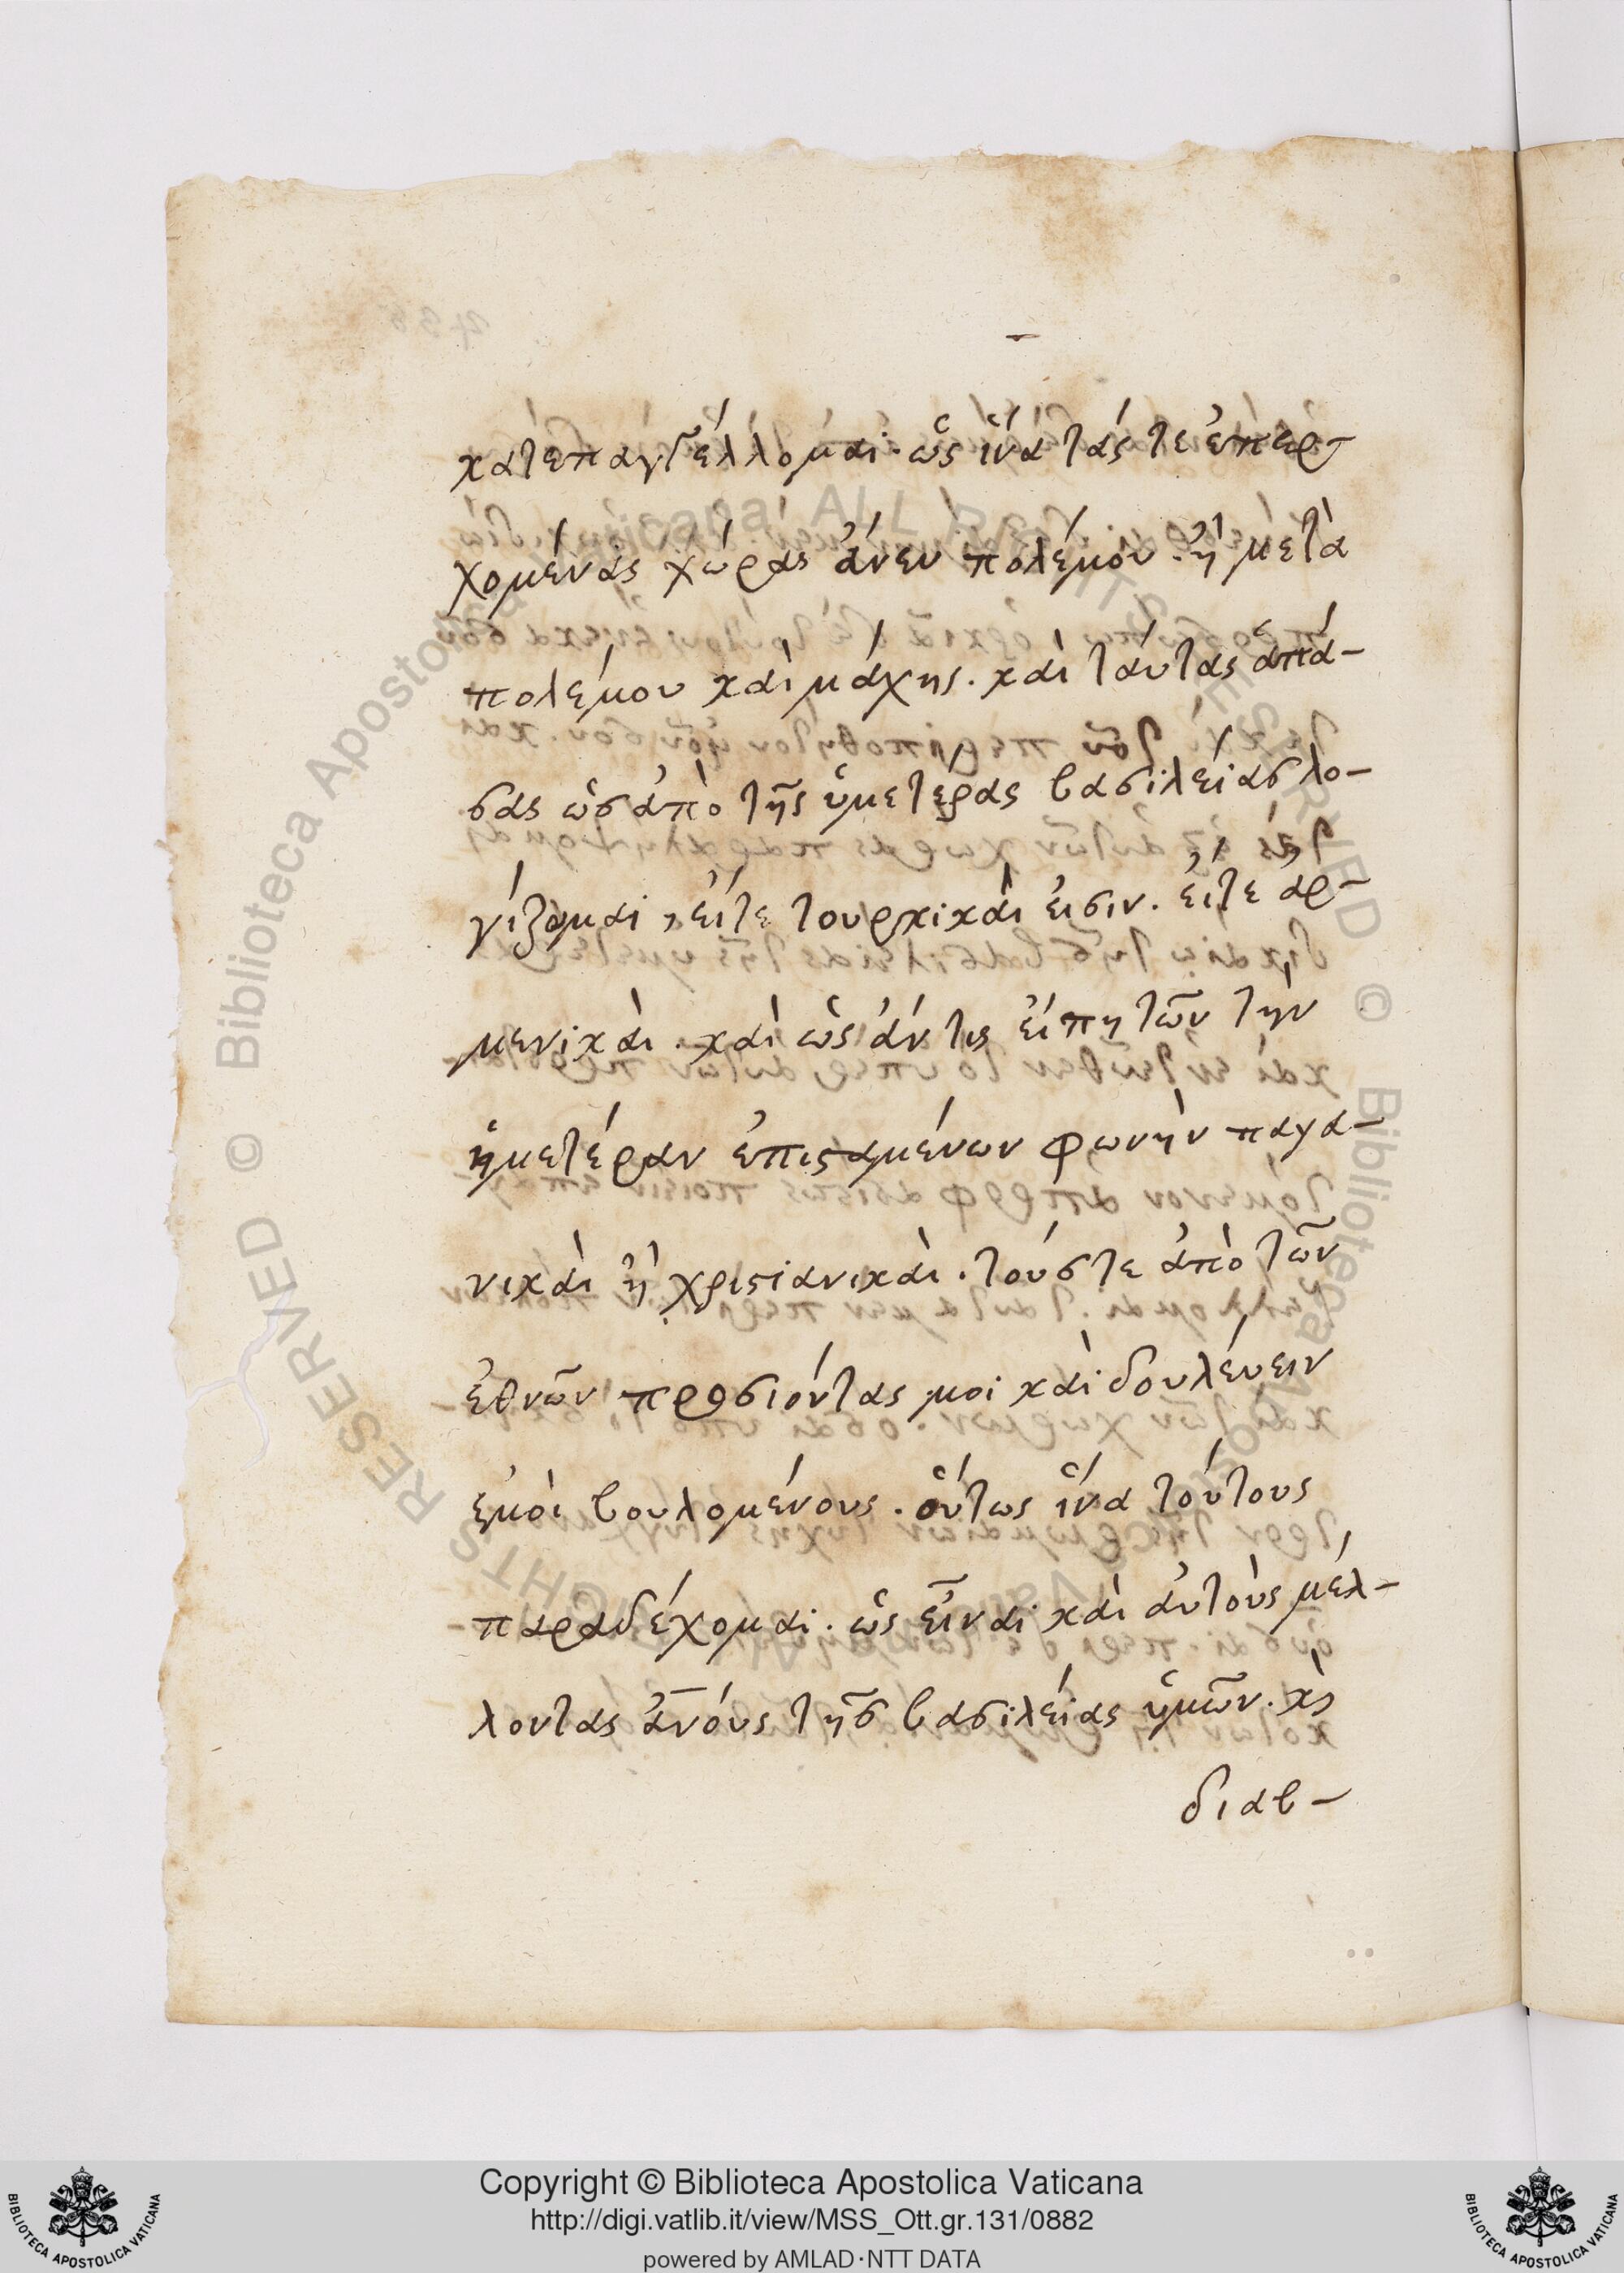 κατεπαγγέλλομαι· ὡς ἵνα τάς τε ἐπερ-
χομένας χώρας ἄνευ πολέμου· ἢ μετὰ
πολέμου καὶ μάχης. καὶ ταύτας ἁπά-
σας ὡσ ἀπὸ τῆς ὑμετέρας βασιλείας λο-
γίζομαι, εἴτε τουρκικαὶ εἰσιν. εἴτε ἀρ-
μενικαὶ. καὶ ὡς ἄν τις εἴπῃ τῶν τὴν
ἡμετέραν ἐπισταμένων φωνὴν παγα-
νικαὶ ἢ χριστιανικαὶ. τούσ τε ἀπὸ τῶν
ἐθνῶν προσιόντας μοι καὶ δουλεύειν
ἐμοὶ βουλομένους. οὕτως ἵνα τούτους
παραδέχομαι. ὡς εἶναι καὶ αὐτοὺς μέλ-
λοντας ἀνόυς τῆσ βασιλείας ὑμῶν. κὶ
διαβ-
Copyright © Biblioteca Apostolica Vaticana
http://digi.vatlib.it/view/MSS_Ott.gr.131/0882
powered by AMLAD·NTT DATA
BIBLIOTECA APOSTOLICA VATICANA
BIBLIOTECA APOSTOLICA VATICANA